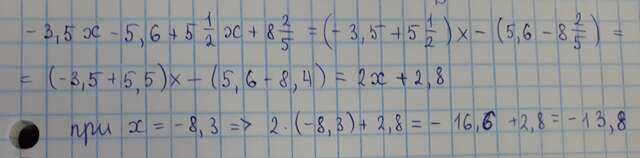 - 3,5x - 5,6 + 5 1/2 x + 8 2/5 = (- 3,5 + 5 1/2) x - (5,6 - 8 2/5) =
= (-3,5 + 5,5)x - (5,6 - 8,4) = 2x + 2,8
при x = -8,3 => 2·(-8,3) + 2,8 = - 16,6 + 2,8 = -13,8